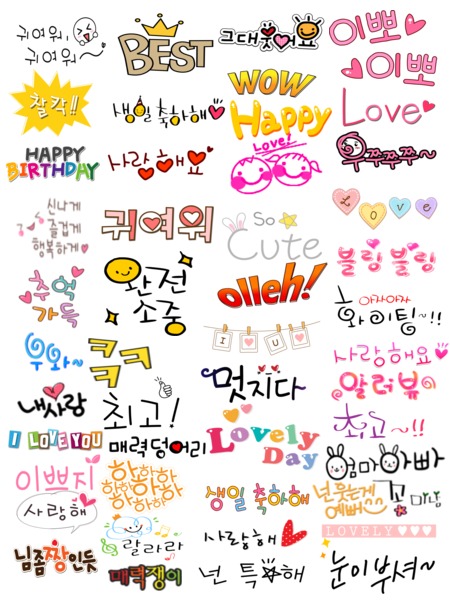 귀여워,
귀여워~
BEST
그대웃어요
이뽀
이뽀
찰칵!!
생일축하해
WOW
Happy
Love
HAPPY
BIRTHDAY
사랑해요
Love!
우쭈쭈쭈~
신나게
즐겁게
행복하게
귀여워
So
Cute
Love
블링블링
추억
가득
완전
소중
olleh!
아자아자
화이팅~!!
우와~
ㅋㅋㅋ
I ♥ U ♥
사랑해요
내사랑
최고!
멋지다
알러뷰
I LOVE YOU
매력덩어리
Lovely
Day
최고~!!
엄마아빠
이쁘지
하하하
하하하하
생일 축하해
넌 웃는게
예뻐
꼬마
사랑해
랄라라
사랑해
LOVELY ♥♥♥
님좀짱인듯
매력쟁이
넌 특★해
눈이부셔~